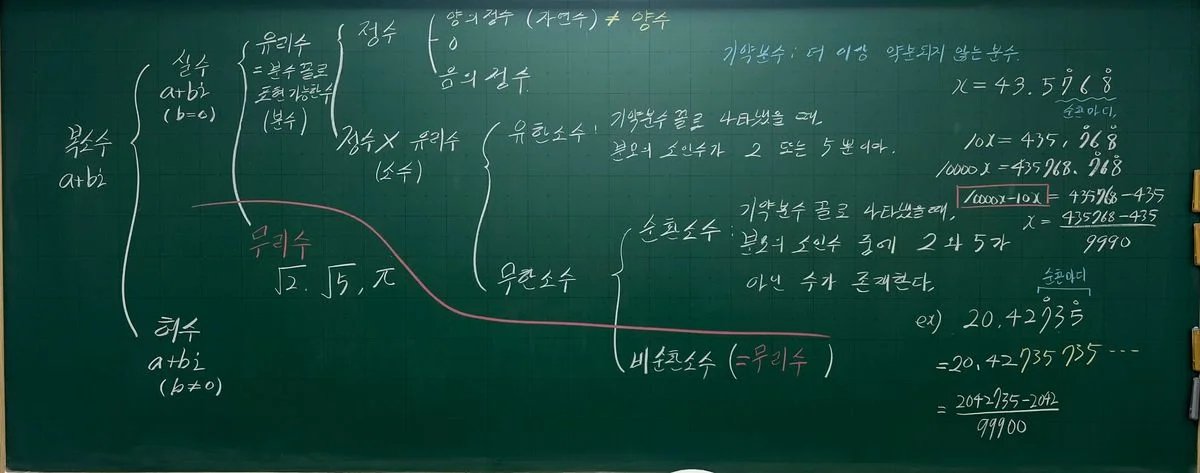 복소수
a+bi
실수
a+bi
(b=0)
허수
a+bi
(b≠0)
유리수
=분수 꼴로
표현 가능한 수
(분수)
무리수
√2. √5, π
정수
양의 정수 (자연수) ≠ 양수
0
음의 정수
정수X 유리수
(소수)
유한소수 : 기약분수 꼴로 나타냈을 때,
분모의 소인수가 2 또는 5 뿐이다.
무한소수
순환소수 : 기약분수 꼴로 나타냈을 때,
분모의 소인수 중에 2와 5가
아닌 수가 존재한다.
비순환소수 (=무리수)
기약분수 : 더 이상 약분되지 않는 분수.
x=43.57̊68̊
순환마디.
10x=435.7̊68̊
10000x=435768.7̊68̊
10000x-10x = 435768-435
x = 435768-435
9990
순환마디
ex) 20.427̊35̊
=20.42735735⋯
= 2042735-2042
99900